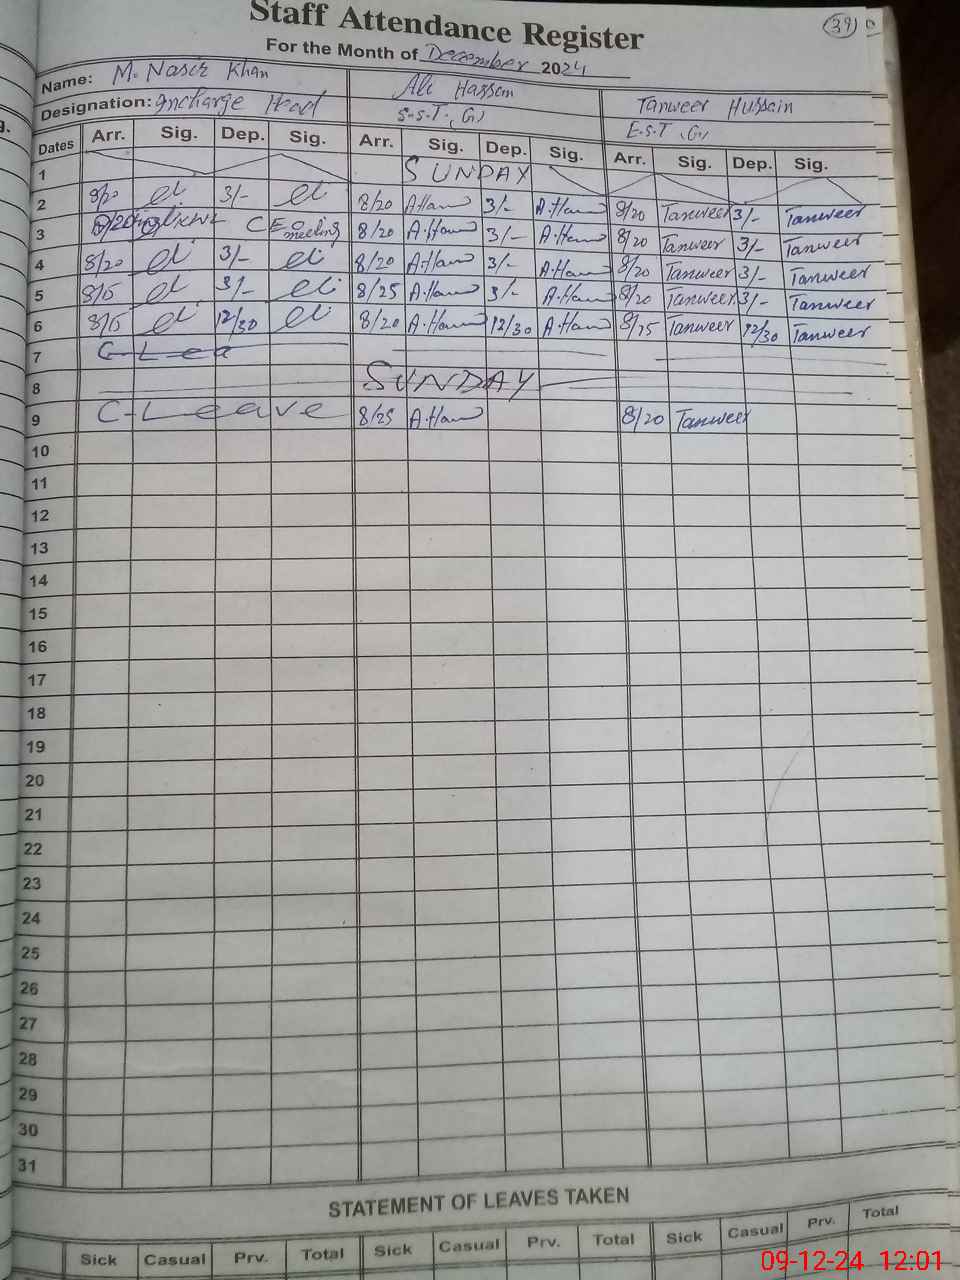 Staff Attendance Register
39
For the Month of December 2024
Name: M. Nasir Khan Ali Hassan Tanweer Hussain
Designation: Incharge Head S.S.T. (G) E.S.T (G)
Dates Arr. Sig. Dep. Sig. Arr. Sig. Dep. Sig. Arr. Sig. Dep. Sig.
1 SUNDAY
2 8/20 3/- 8/20 3/- 8/20 Tanweer 3/- Tanweer
3 CEO meeting 8/20 3/- 8/20 Tanweer 3/- Tanweer
4 8/20 3/- 8/20 3/- 8/20 Tanweer 3/- Tanweer
5 8/15 3/- 8/25 3/- 8/20 Tanweer 3/- Tanweer
6 8/15 12/30 8/20 12/30 8/15 Tanweer 12/30 Tanweer
7 C-Lea
8 SUNDAY
9 C-Leave 8/25 8/20 Tanweer
10
11
12
13
14
15
16
17
18
19
20
21
22
23
24
25
26
27
28
29
30
31
STATEMENT OF LEAVES TAKEN
Sick Casual Prv. Total Sick Casual Prv. Total Sick Casual Prv. Total
09-12-24 12:01